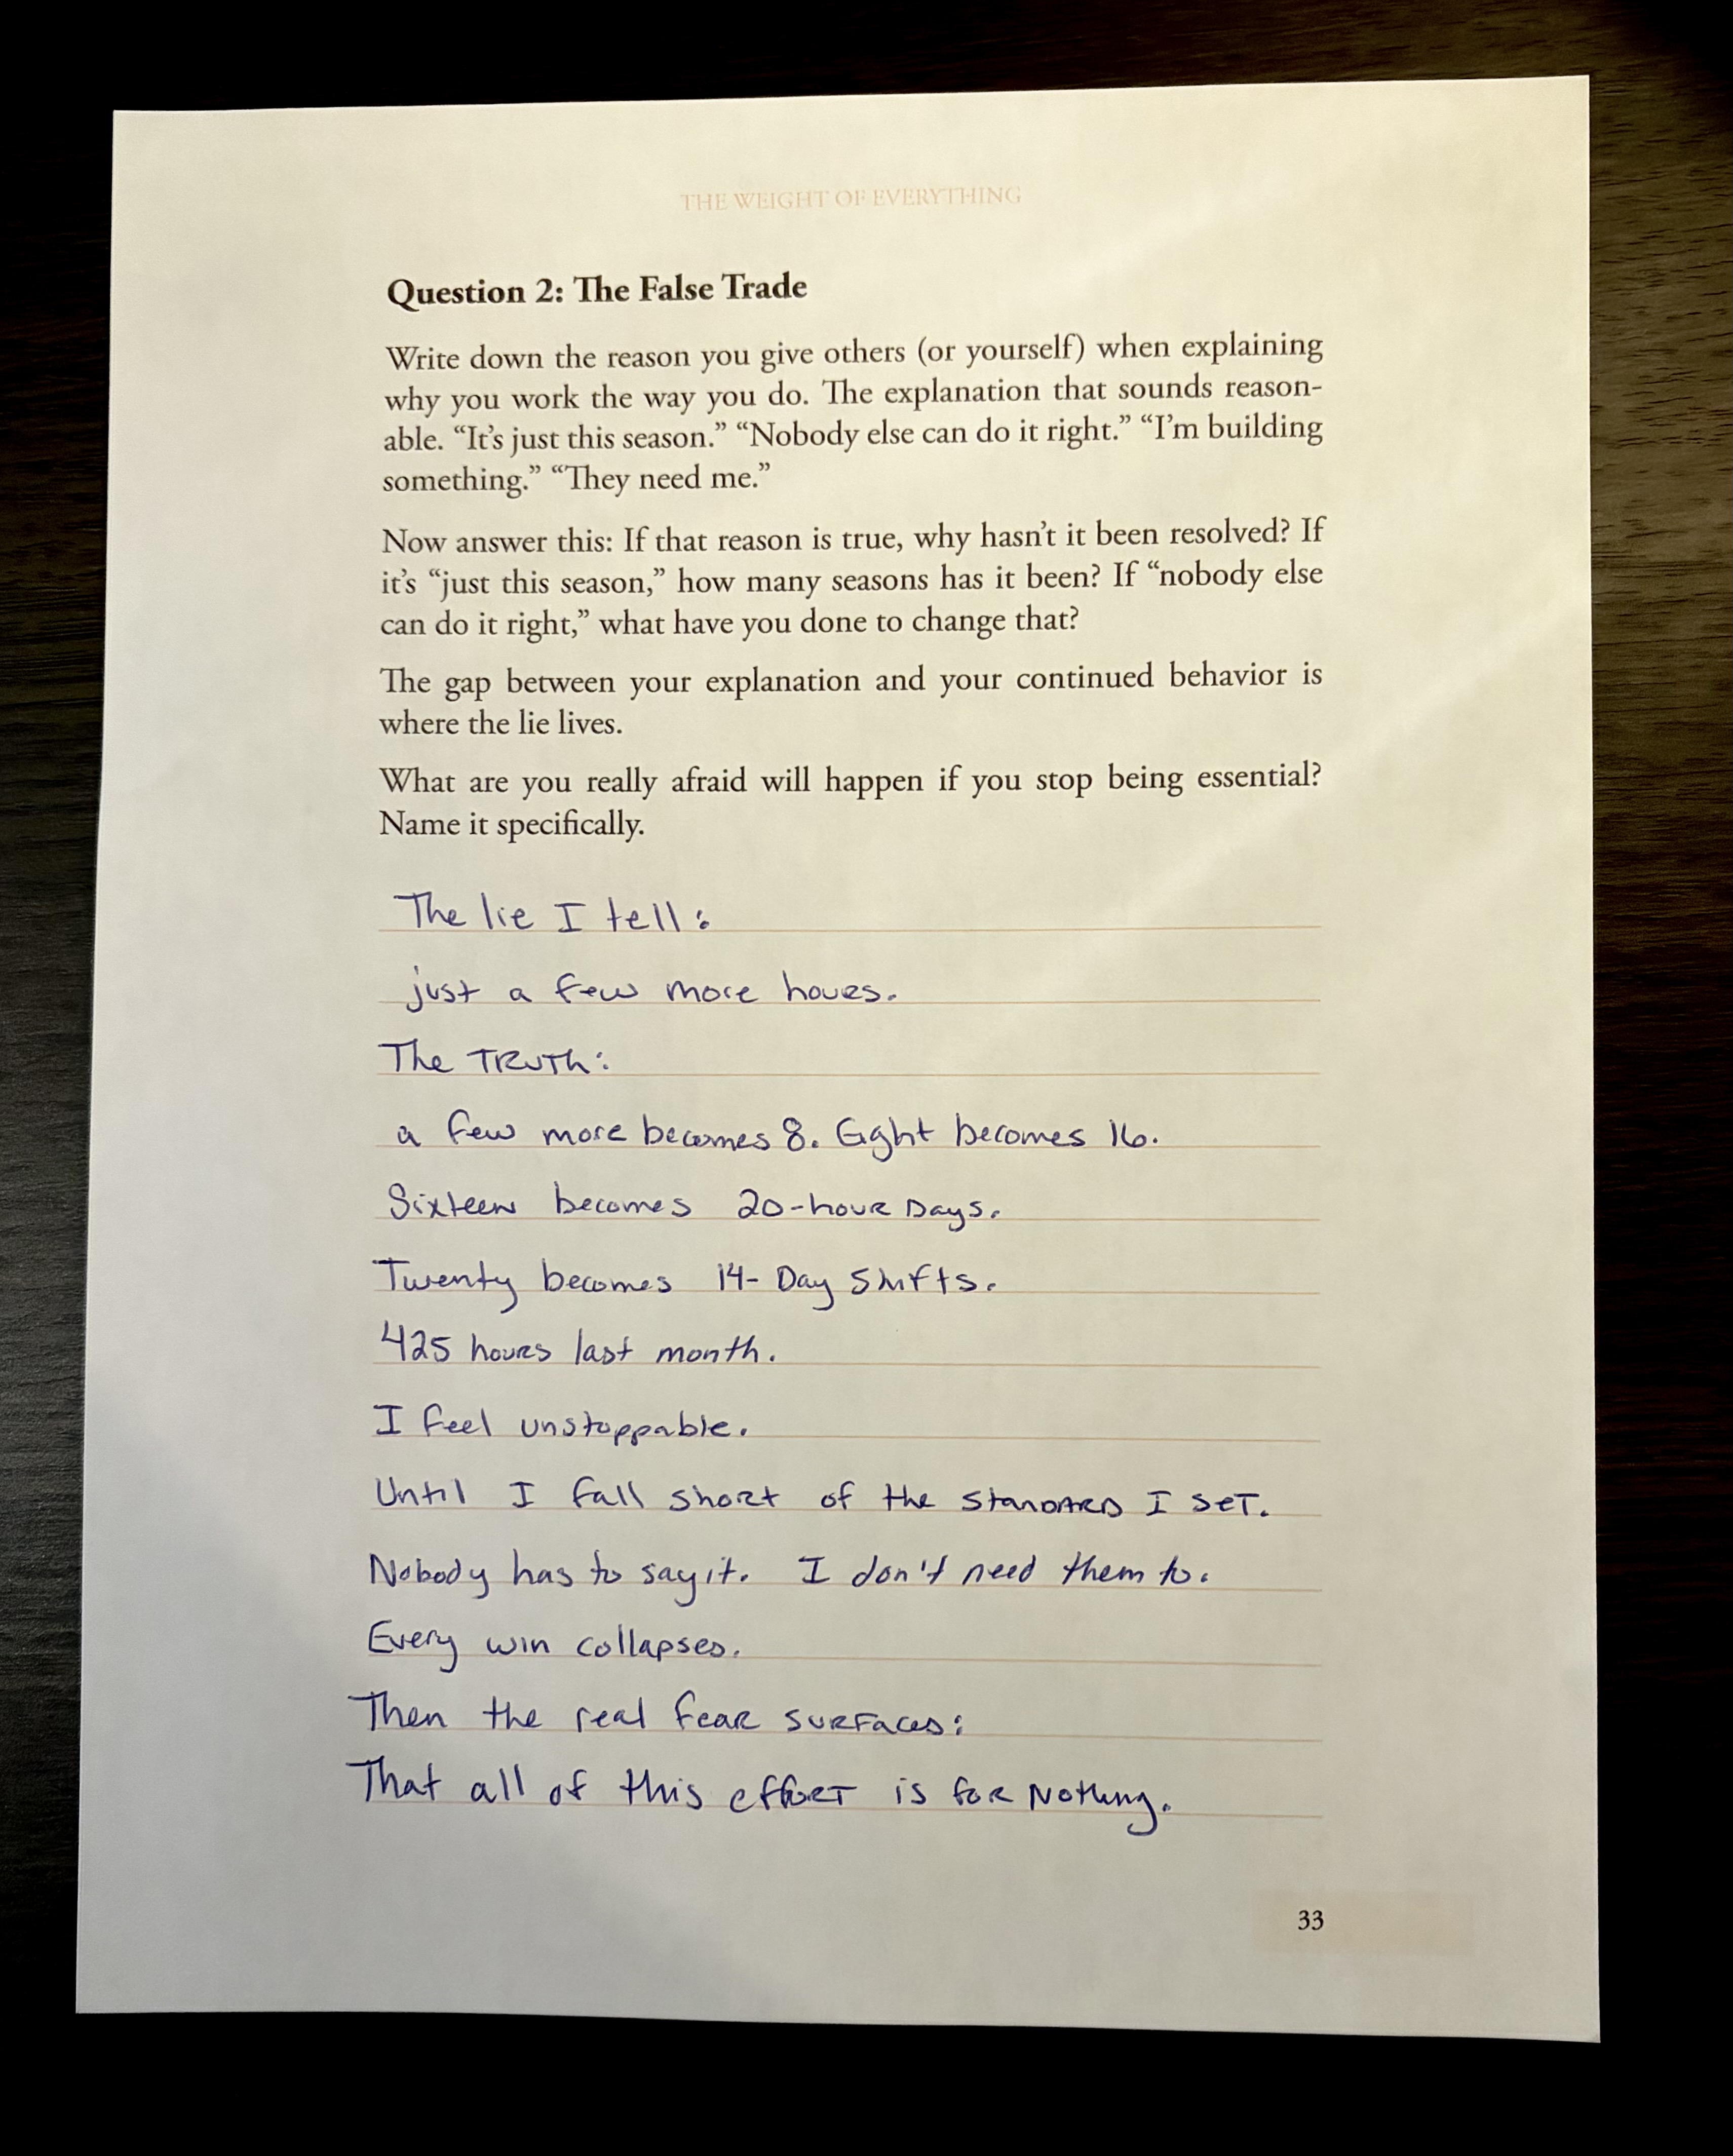 THE WEIGHT OF EVERYTHING
Question 2: The False Trade
Write down the reason you give others (or yourself) when explaining
why you work the way you do. The explanation that sounds reason-
able. “It’s just this season.” “Nobody else can do it right.” “I’m building
something.” “They need me.”
Now answer this: If that reason is true, why hasn’t it been resolved? If
it’s “just this season,” how many seasons has it been? If “nobody else
can do it right,” what have you done to change that?
The gap between your explanation and your continued behavior is
where the lie lives.
What are you really afraid will happen if you stop being essential?
Name it specifically.
The lie I tell:
just a few more hours.
The TRUTH:
a few more becomes 8. Eight becomes 16.
Sixteen becomes 20-hour Days.
Twenty becomes 14-Day Shifts.
425 hours last month.
I feel unstoppable.
Until I fall short of the standard I set.
Nobody has to say it. I don't need them to.
Every win collapses.
Then the real fear surfaces:
That all of this effort is for Nothing.
33